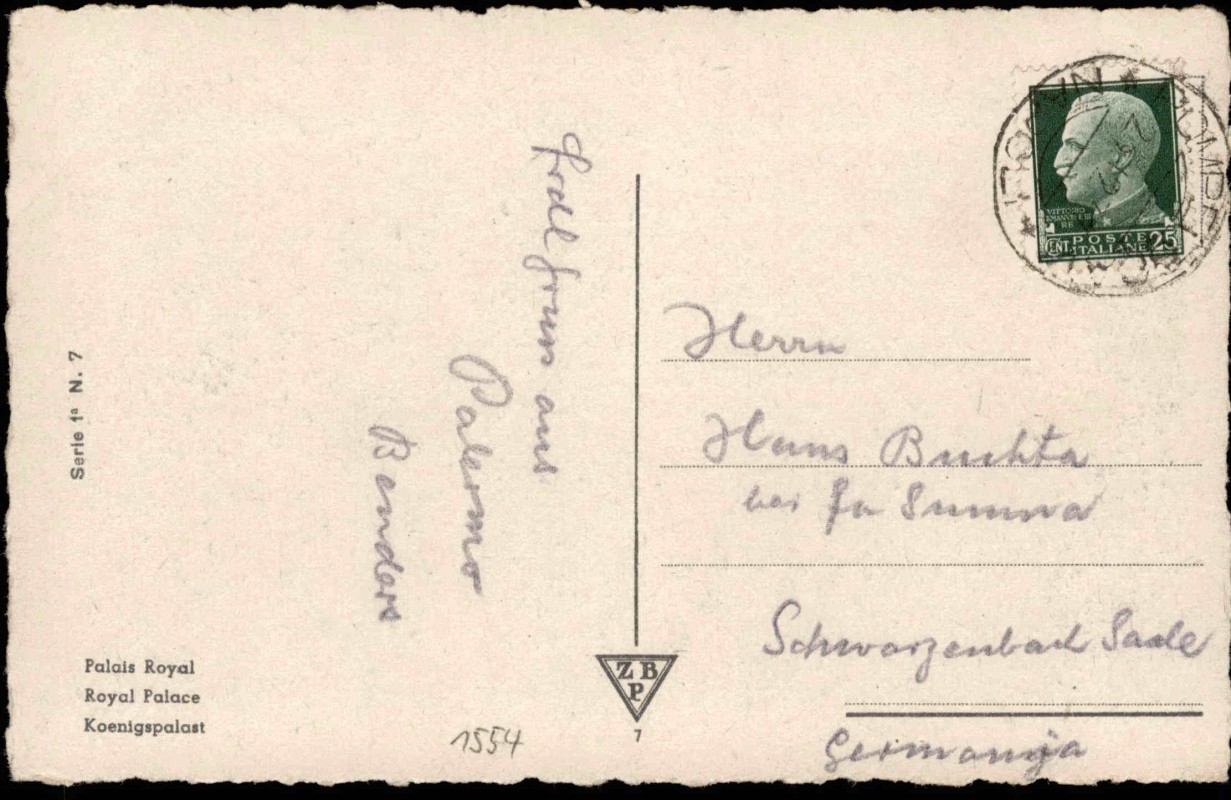 aus
Palermo
Benders
Herrn
Hans Buchta
bei Fa Summa
Schwarzenbach Saale
Germania
VITTORIO
EMANUELE III
RE
CENT. POSTE 25
ITALIANE
Serie 1ª N. 7
Palais Royal
Royal Palace
Koenigspalast
Z B
P
7
1554